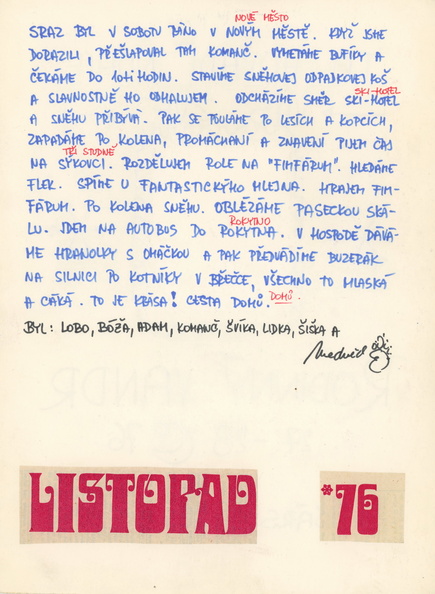 NOVÉ MĚSTO
SRAZ BYL V SOBOTU RÁNO V NOVÝM MĚSTĚ. KDYŽ JSME
DORAZILI, PŘEŠLAPOVAL TAM KOMANČ. VYMETÁME BUFÍKY A
ČEKÁME DO 10TI HODIN. STAVÍME SNĚHOVEJ ODPADKOVEJ KOŠ
A SLAVNOSTNĚ HO ODHALUJEM. ODCHÁZÍME SMĚR SKI-HOTEL
SKI-HOTEL
A SNĚHU PŘIBÝVÁ. PAK SE TOULÁME PO LESÍCH A KOPCÍCH,
ZAPADÁME PO KOLENA, PROMÁCHANÍ A ZNAVENÍ PIJEM ČAJ
TŘI STUDNĚ
NA SYKOVCI. ROZDĚLUJEM ROLE NA "FIMFÁRUM". HLEDÁME
FLEK. SPÍME U FANTASTICKÝHO MLEJNA. HRAJEM FIM-
FÁRUM. PO KOLENA SNĚHU. OBLÉZÁME PASECKOU SKÁ-
ROKYTNO
LU. JDEM NA AUTOBUS DO ROKYTNA. V HOSPODĚ DÁVÁ-
ME HRANOLKY S OMÁČKOU A PAK PŘEDVÁDÍME BUZERÁK
NA SILNICI PO KOTNÍKY V BŘEČCE, VŠECHNO TO MLASKÁ
A CÁKÁ. TO JE KRÁSA! CESTA DOMŮ.
DOMŮ.
BYL: LOBO, BÓŽA, ADAM, KOMANČ, ŠVÍKA, LIDKA, ŠIŠKA A
Medvěd
LISTOPAD *76